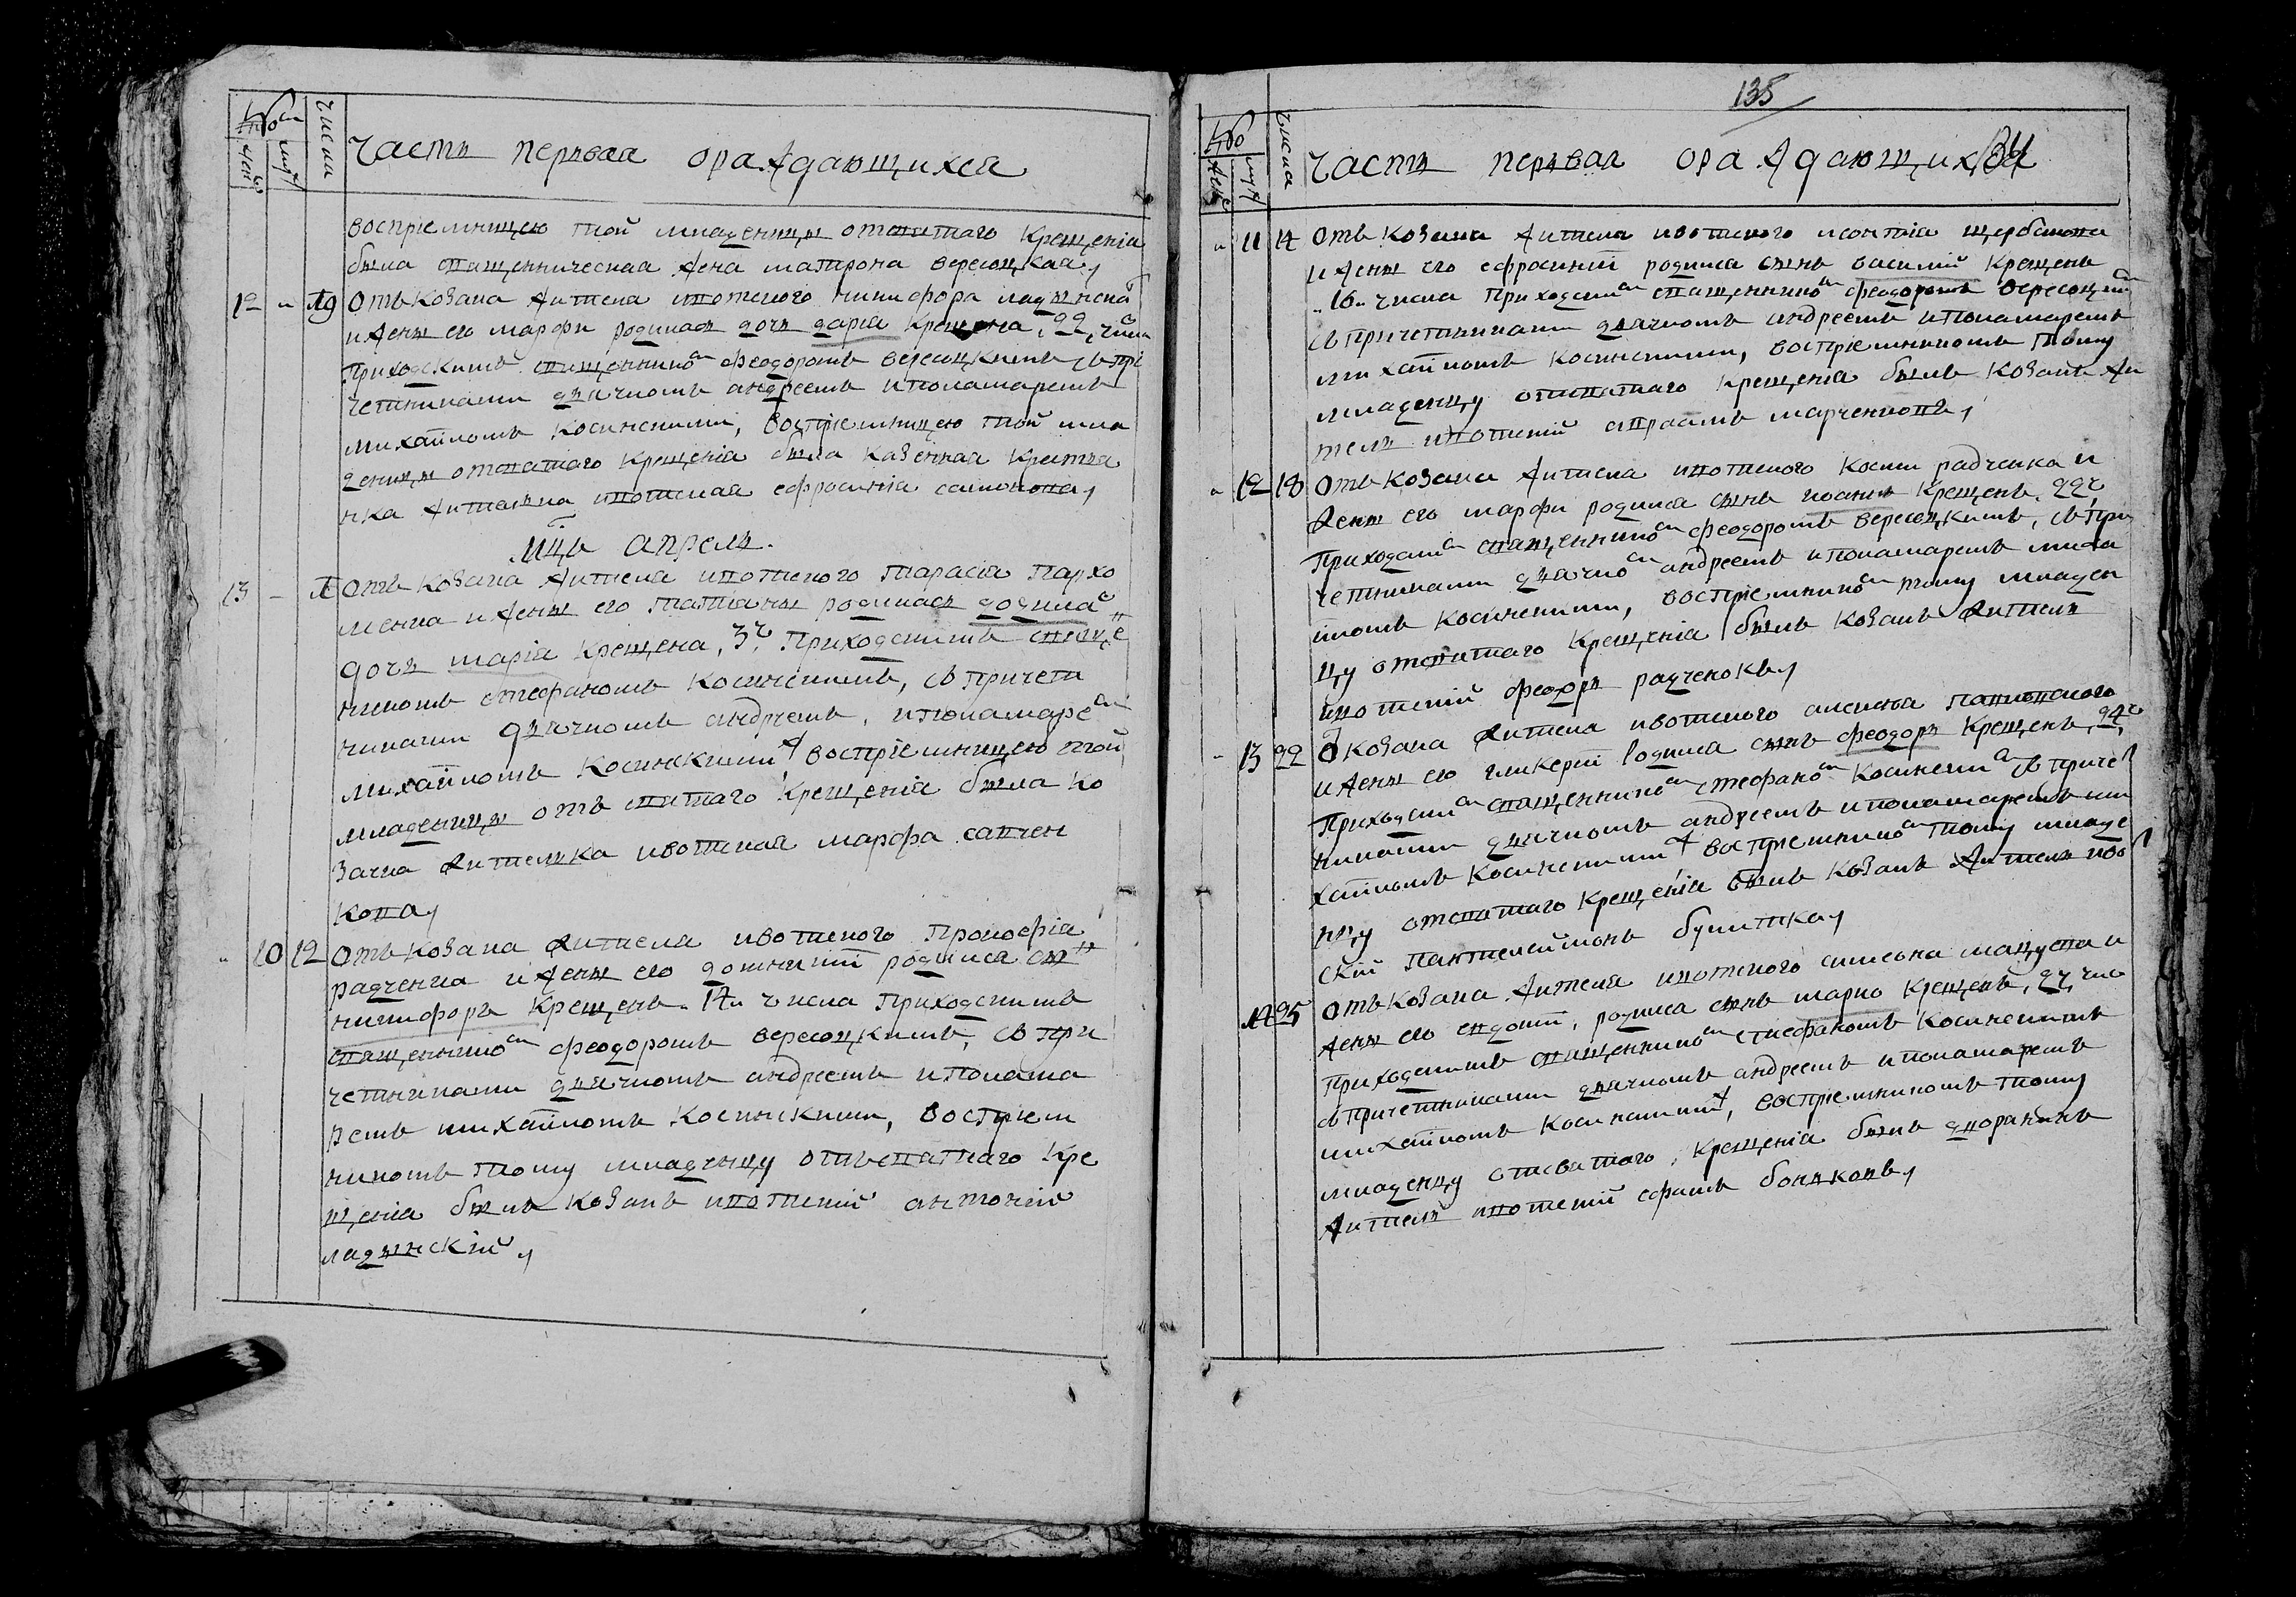 Число
Часть первая ораждающихся
воспрїемницею той младеницы отсвятаго крещенїа
была священническая жена матрона вересоцкая,
12 " 19 Отъ козака жителя ивотского никифора ладынско
и жены его марфы родилась дочь дарїа крещена, 22, числа
приходскимъ священникомъ феодоромъ вересоцкимъ, съ при
четниками дьячкомъ андреемъ и понамаремъ
михайломъ косинскими, воспрїемницею той мла
деницы отсвятаго крещенїа была казенная крестья
нка жителька ивотская ефросинїа самкова,
Мцъ апрель.
13 - Отъ козака жителя ивотского тарасїа пархо
менка и жены его татїаны родилась
дочь марїа крещена, 3г, приходскимъ свяще
никомъ стефаномъ косинскимъ, съ причетн
никами дьячкомъ андреемъ, и понамаремъ
михайломъ косинскими воспрїемницею той
младеницы отъ святаго крещенїа была ко
зачка жителька ивотская марфа савчен
кова,
" 10 12 Отъ козака жителя ивотского прокофїа
радченка и жены его домникїи родился сын
никифоръ крещенъ 14 числа приходскимъ
священникомъ феодоромъ вересоцкимъ, съ при
четниками дьячкомъ андреемъ и понама
ремъ михайломъ косинскими, воспрїем
никомъ тому младенцу отъ святаго кре
щенїа былъ козакъ ивотскїй антонїй
ладынскїй,
135
Число
Часть первая ораждающихся
134
" 11 14 Отъ козака жителя ивотского леонтїа щербакова
и жены его ефросинїи родился сынъ василїй крещенъ
16 числа приходскимъ священникомъ феодоромъ вересоцкимъ
съ причетниками дьячкомъ андреемъ и понамаремъ
михайломъ косинскими, воспрїемникомъ тому
младенцу отсвятаго крещенїа былъ козакъ жи
тель ивотскїй марченковъ,
" 12 18 Отъ козака жителя ивотского космы радченка и
жены его марфы родился сынъ иоаннъ крещенъ, 22г,
приходскимъ священникомъ феодоромъ вересоцкимъ, съ при
четниками дьячкомъ андреемъ и понамаремъ миха
йломъ косинскими, воспрїемникомъ тому младен
цу отсвятаго крещенїа былъ козакъ житель
ивотскїй феодоръ радченокъ,
" 13 22 От козака жителя ивотского алексѣа
и жены его гликерїи родился сынъ феодоръ крещенъ, 24г,
приходскимъ священникомъ стефаномъ косинскимъ съ причет
никами дьячкомъ андреемъ и понамаремъ ми
хайломъ косинскими воспрїемникомъ тому младе
нцу отсвятаго крещенїа былъ козакъ житель иво
скїй пантелеймонъ
14 25 Отъ козака жителя ивотского симеона мацуева и
жены его евдокїи, родился сынъ марко крещенъ, 27, число
приходскимъ священникомъ стефаномъ косинскимъ
съ причетниками дьячкомъ андреемъ и понамаремъ
михайломъ косинскими, воспрїемникомъ тому
младенцу отсвятаго крещенїа былъ дворянинъ
житель ивотскїй ефимъ боньковъ,